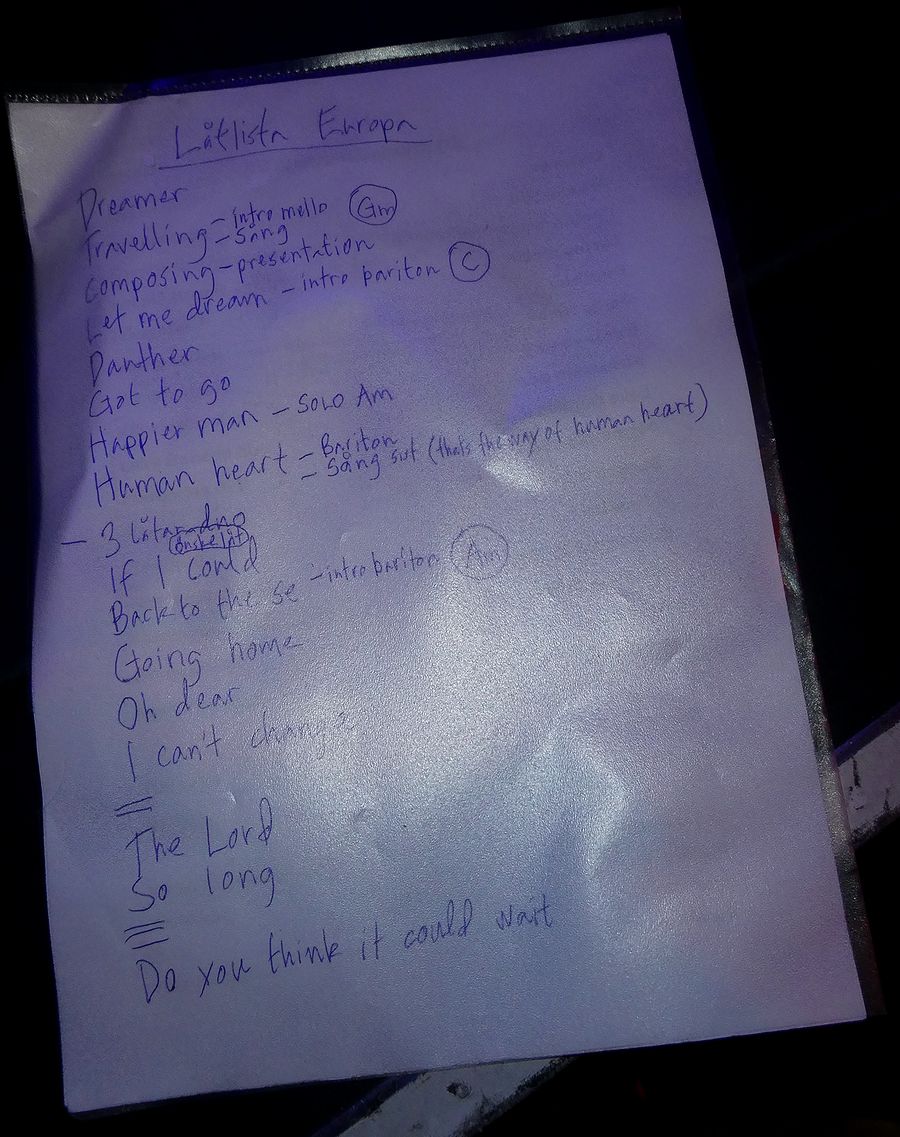 Låtlista Europa
Dreamer
Travelling - intro mello Gm
- Sång
Composing - presentation
Let me dream - intro bariton C
Panther
Got to go
Happier man - Solo Am
Human heart - Bariton
- Sång sut (thats the way of human heart)
- 3 låtar duo
önskelåt
If I could
Back to the se - intro bariton Am
Going home
Oh dear
I can't change
The Lord
So long
Do you think it could wait